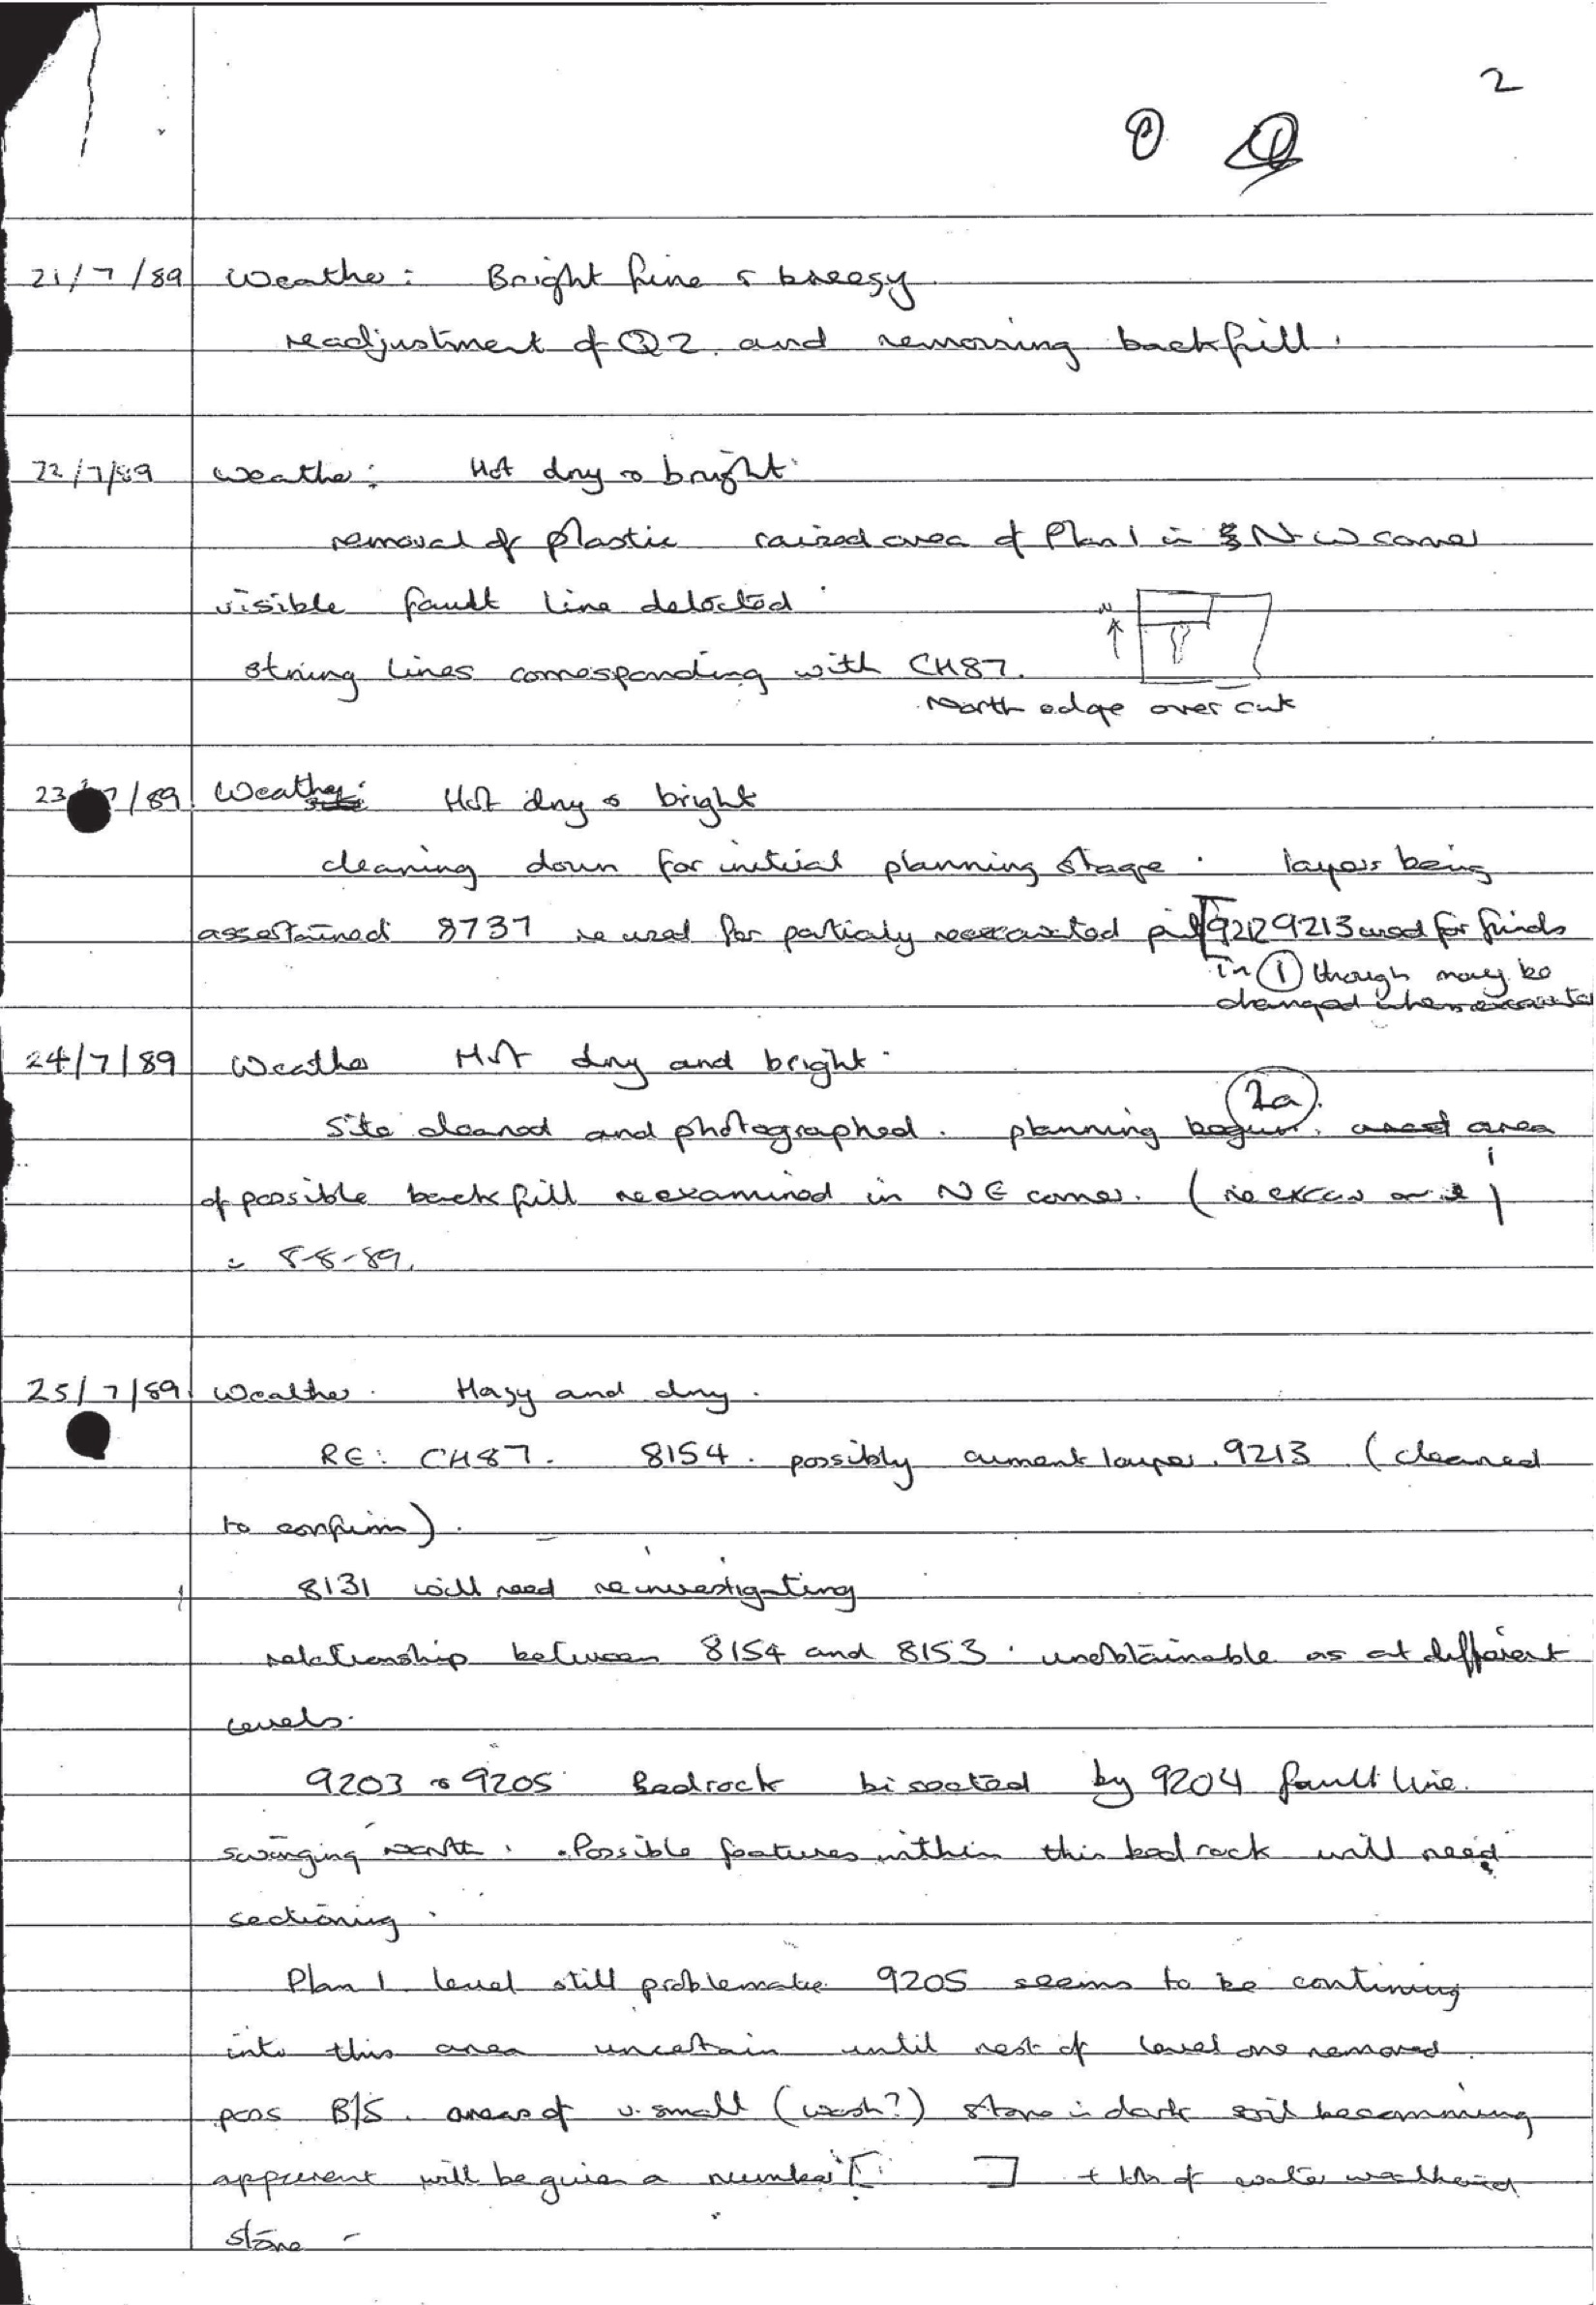 2
21/7/89 Weather: Bright fine & breezy
readjustment of Q2. and removing backfill.
22/7/89 Weather: Hot dry & bright
removal of plastic raised area of Plan 1 in N-W corner
visible fault line detected
N
string lines corresponding with CH87.
North edge over cut
23/7/89 Weather: Hot dry & bright
cleaning down for initial planning stage. layers being
assertained 8737 re used for partialy reexcavated pit [9212 9213 used for finds
in 1 though may be
changed when excavated
24/7/89 Weather Hot dry and bright.
2a
Site cleaned and photographed. planning begun. area
of possible backfill reexamined in NE corner. (re excav
= 8-8-89.
25/7/89 Weather. Hazy and dry.
RE: CH87. 8154. possibly current layer. 9213 (cleaned
to confirm).
8131 will need reinvestigating
relationship between 8154 and 8153. unobtainable as at different
levels.
9203 & 9205 Bedrock bisected by 9204 fault line.
swinging north. Possible features within this bedrock will need
sectioning.
Plan 1 level still problematic 9205 seems to be contining
into this area uncertain until rest of level one removed.
poss B/S. areas of v. small (wash?) stone in dark soil becomming
apparent will be given a number [ ] + lots of water weathered
stone -